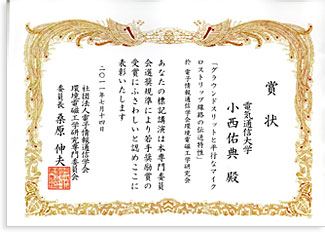 賞状
電気通信大学
小西佑典 殿
「グラウンドスリットと平行なマイク
ロストリップ線路の伝送特性」
於 電子情報通信学会環境電磁工学研究会
あなたの標記講演は本専門委員
会選奨規準により若手奨励賞の
受賞にふさわしいと認めここに
表彰いたします
二〇一一年七月十四日
社団法人電子情報通信学会
環境電磁工学研究専門委員会
委員長 桑原 伸夫